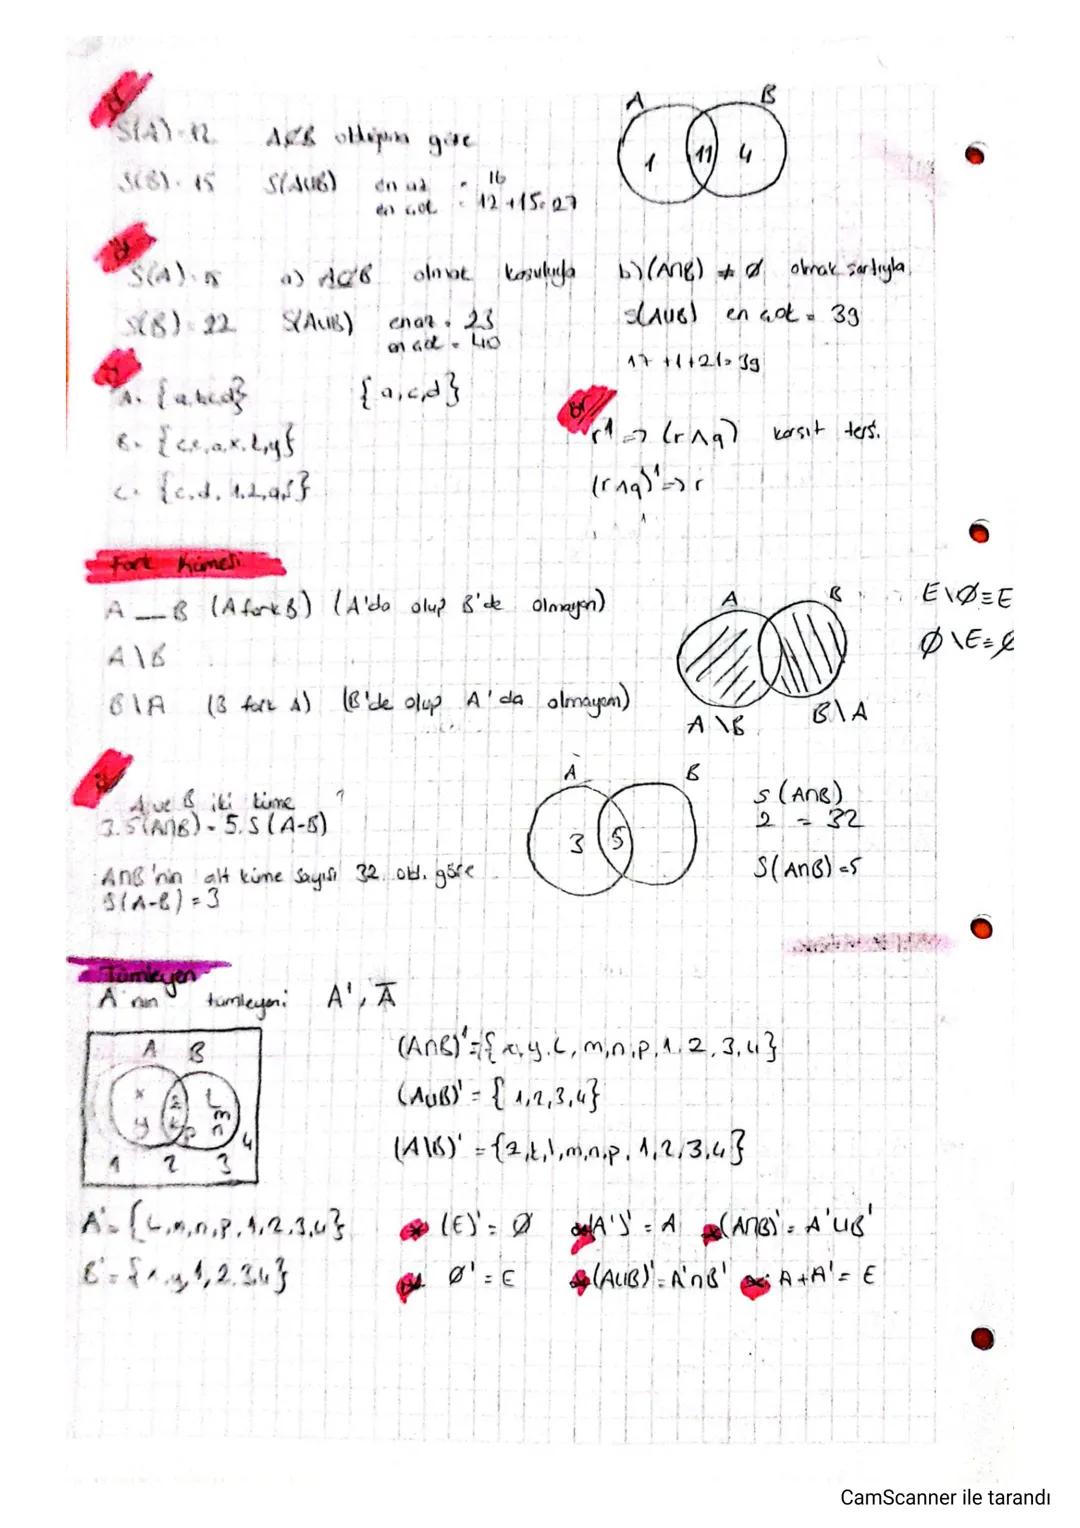 Ör
S(A)=12 A⊄B olduğuna göre
S(B)=15 S(A∪B) en az = 16
en çok = 12+15=27
A B
1 11 4
Ör
S(A)=18 a) A⊄B olmak koşuluyla
S(B)=22 S(A∪B) en az = 23
en çok = 40
b) (A∩B) ≠ ∅ olmak şartıyla
S(A∪B) en çok = 39
17+1+21=39
A= {a,b,c,d} {a,c,d}
B= {c,e,a,x,L,y}
C= {c,d,1,2,a,5}
Ör
r' => (r∧q) karşıt ters.
(r∧q)' => r
Fark Kümesi
A — B (A fark B) (A'da olup B'de olmayan)
A\B
B\A (B fark A) (B'de olup A'da olmayan)
A B
A\B B\A
E\∅=E
∅\E=∅
Ör
A ve B iki küme ?
3.S(A∩B)=5.S(A-B)
A∩B'nin alt küme sayısı 32 old. göre
S(A-B)=3
A B
3 5
S(A∩B)
2 = 32
S(A∩B)=5
Tümleyen
A'nın tümleyeni A', A̅
A B
x 2 L
y k p m n
1 2 3 4
(A∩B)'={x,y,L,m,n,p,1,2,3,4}
(A∪B)' = {1,2,3,4}
(A\B)' = {2,k,l,m,n,p,1,2,3,4}
A'= {L,m,n,p,1,2,3,4}
B'= {x,y,1,2,3,4}
* (E)' = ∅ * (A')' = A * (A∩B)' = A'∪B'
* ∅' = E * (A∪B)' = A'∩B' * A+A' = E
CamScanner ile tarandı